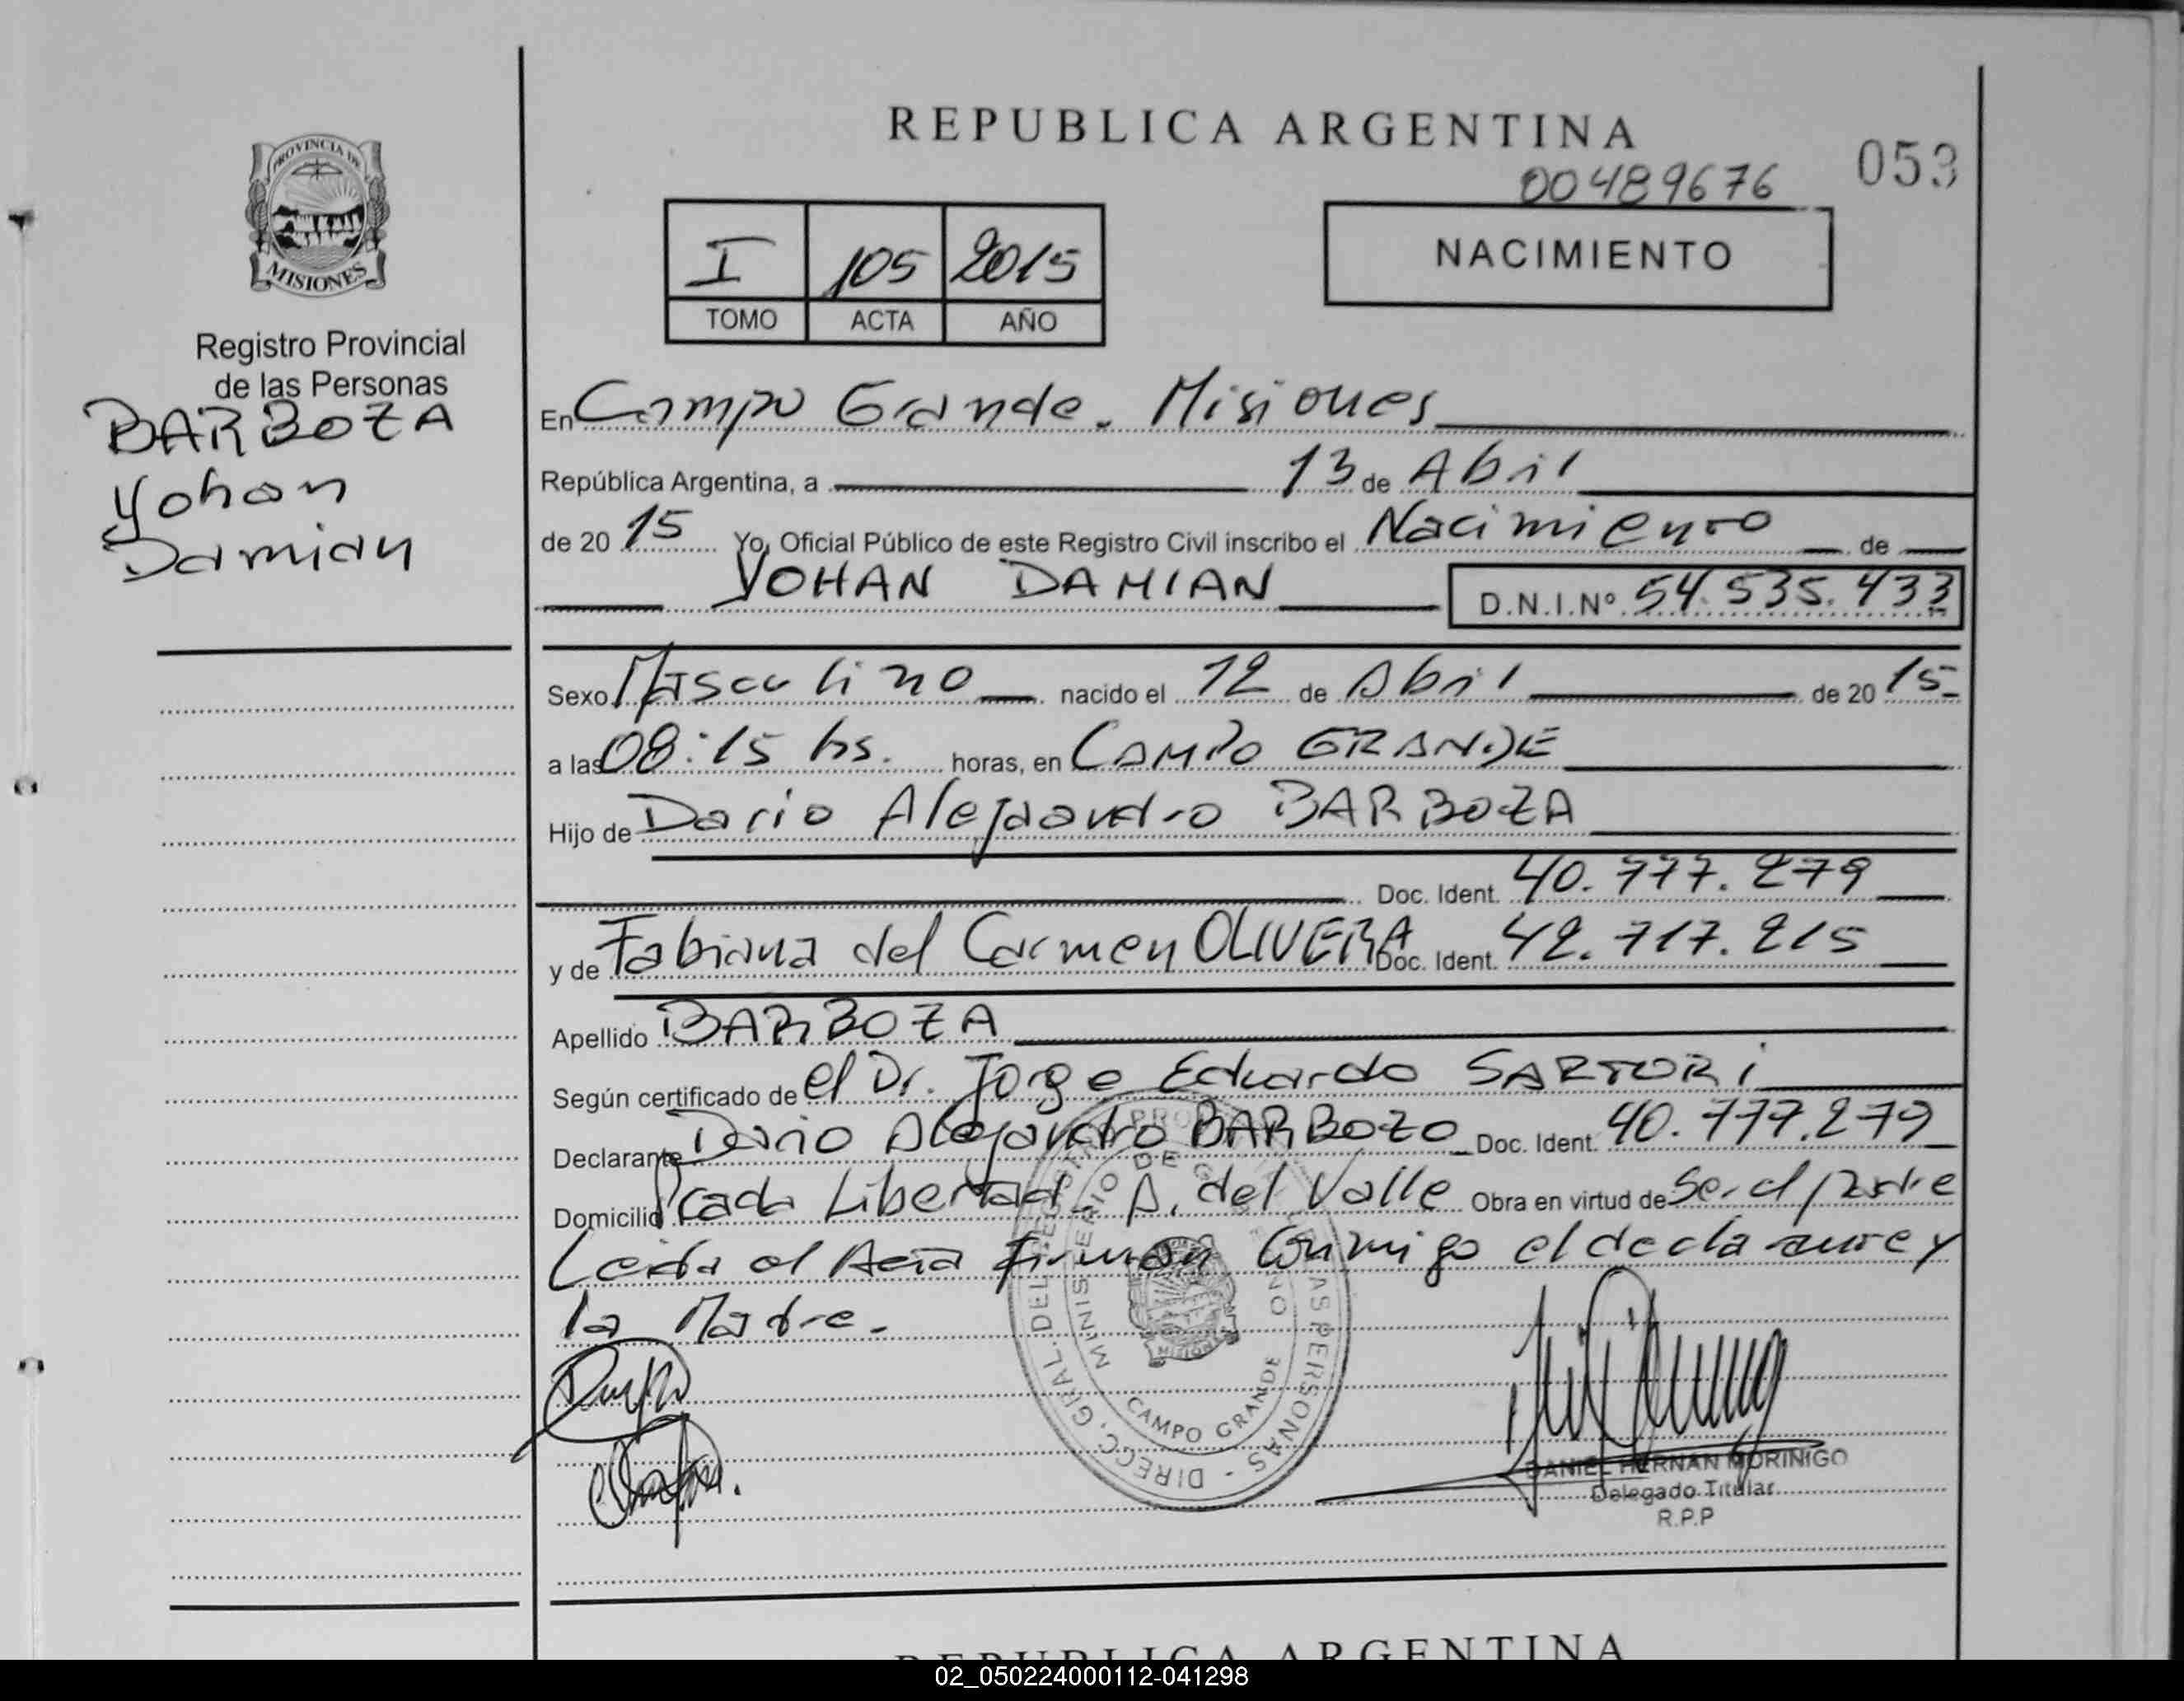 REPUBLICA ARGENTINA
00489676
053
PROVINCIA DE
MISIONES
Registro Provincial
de las Personas
BARBOZA
Yohan
Damian
I 105 2015
TOMO ACTA AÑO
NACIMIENTO
En Campo Grande. Misiones
República Argentina, a 13 de Abril
de 20 15 Yo, Oficial Público de este Registro Civil inscribo el Nacimiento de
YOHAN DAMIAN D.N.I.Nº 54.535.433
Sexo Masculino nacido el 12 de Abril de 20 15
a las 08:15 hs. horas, en CAMPO GRANDE
Hijo de Dario Alejandro BARBOZA
Doc. Ident. 40.777.279
y de Fabiana del Carmen OLIVERA Doc. Ident. 42.717.215
Apellido BARBOZA
Según certificado de el Dr. Jorge Eduardo SARTORI
Declarante Dario Alejandro BARBOZO Doc. Ident. 40.777.279
Domicilio Picada Libertad - A. del Valle Obra en virtud de Ser el padre
Leida el Acta firman Conmigo el declarante y
la Madre.
DIRECC. GRAL. DEL PERSONAS
MINISTERIO DE
CAMPO GRANDE
MISIONES
DANIEL HERNAN MORINIGO
Delegado Titular
R.P.P
REPUBLICA ARGENTINA
02_050224000112-041298